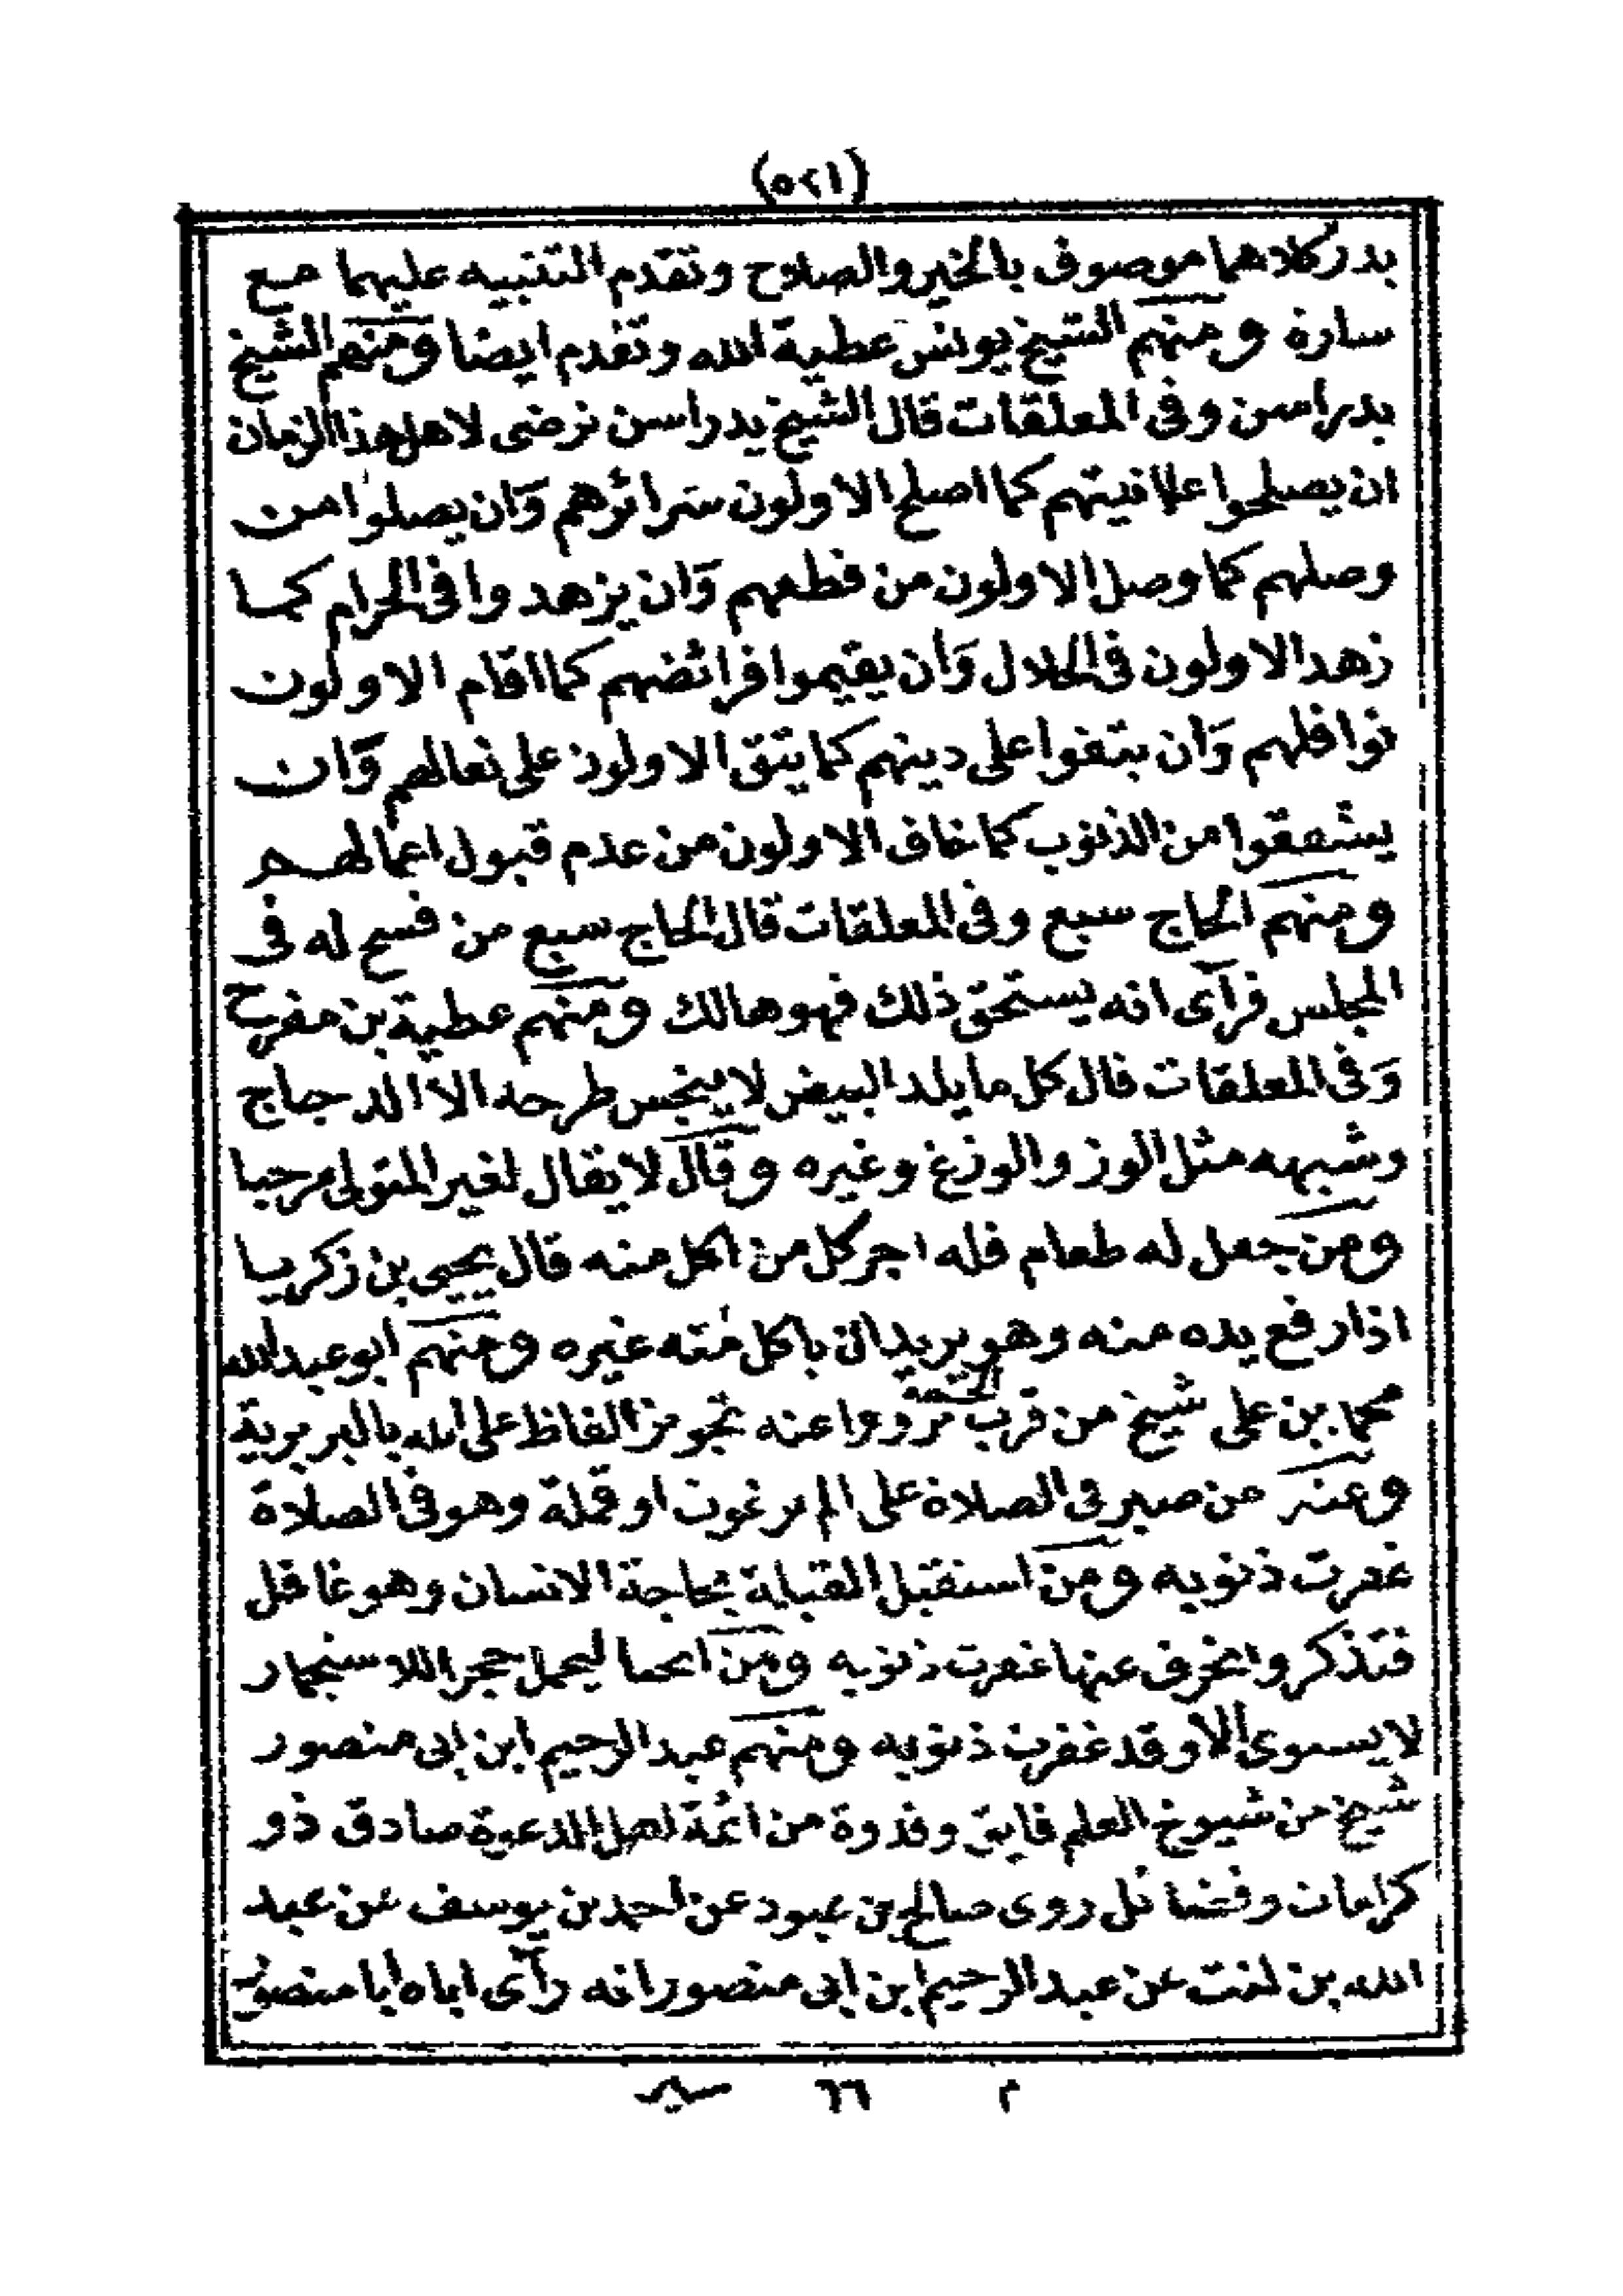 (٥٢١)
بدر كلاهما موصوف بالخير والصلاح وتقدم التنبيه عليهما مع
سارة ومنهم الشيخ يونس عطية الله وتقدم ايضا ومنهم الشيخ
يدراسن وفى المعلقات قال الشيخ يدراسن نرضى لاهل هذا الزمان
ان يصلحوا علانيتهم كما اصلح الاولون سرائرهم وَان يصلوا من
وصلهم كما وصل الاولون من قطعهم وَان يزهدوا فى الحرام كما
زهد الاولون فى الحلال وَان يقيموا فرائضهم كما اقام الاولون
نوافلهم وَان يتقوا على دينهم كما يتق الاولون على نعالهم وَان
يشفقوا من الذنوب كما خاف الاولون من عدم قبول اعمالهم
ومنهم الحاج سبع وفى المعلقات قال الحاج سبع من فسح له فى
المجلس فرآى انه يستحق ذلك فهو هالك ومنهم عطية بن مفرح
وَفى المعلقات قال كل ما يلد البيض لا ينجس طرحه الا الدجاج
وشبهه مثل الوز والوزغ وغيره وقال لا يقال لغير المتولى مرحبا
ومن جعل له طعام فله اجر كل من اكل منه قال يحيى بن زكريا
اذا رفع يده منه وهو يريد ان ياكل منه غيره ومنهم ابو عبد الله
محمد بن على شيخ من قرب رووا عنه تجويز الفاظ على الله بالبربرية
وعنه من صبر فى الصلاة على الم برغوث او قملة وهو فى الصلاة
غفرت ذنوبه ومن استقبل القبلة بحاجة الانسان وهو غافل
فتذكر وانحرف عنها غفرت ذنوبه ومن انحنا ليحمل حجرا للاستجمار
لا يستوى الا وقد غفرت ذنوبه ومنهم عبد الرحيم ابن ابى منصور
شيخ من شيوخ العلم فايق وقدوة من ائمة اهل الدعوة صادق ذو
كرامات وفضائل روى صالح بن عبود عن احمد بن يوسف عن عبد
الله بن لنت عن عبد الرحيم ابن ابى منصور انه رآى اباه ابا منصور
٢ ٦٦ سير